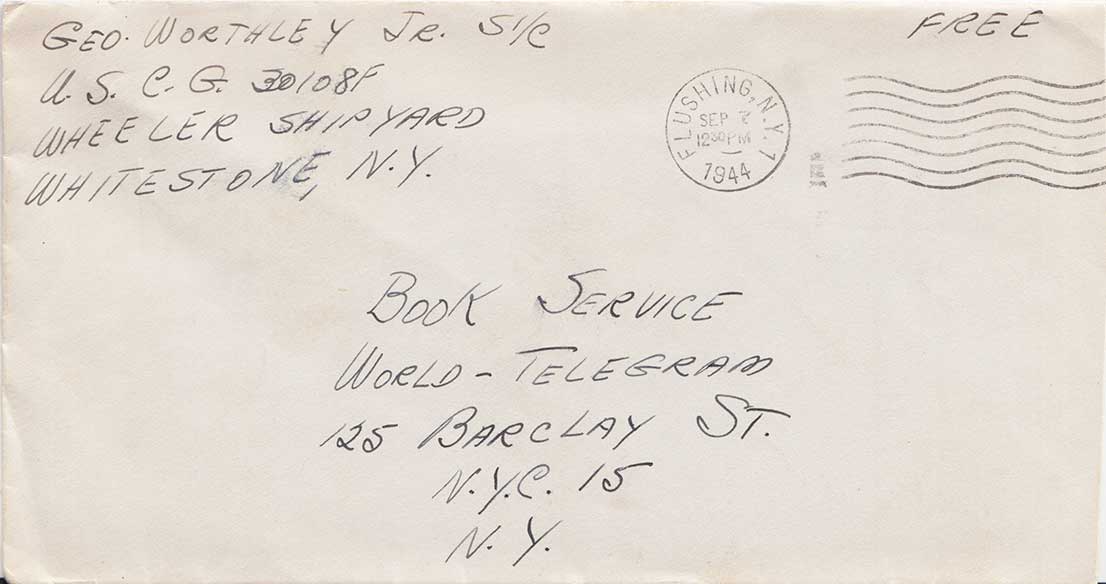 GEO. WORTHLEY JR. S1/C
U.S.C.G. 30108F
WHEELER SHIPYARD
WHITESTONE, N.Y.
FREE
FLUSHING, N.Y. 1
SEP 7
12 30 PM
1944
BOOK SERVICE
WORLD-TELEGRAM
125 BARCLAY ST.
N.Y.C. 15
N.Y.